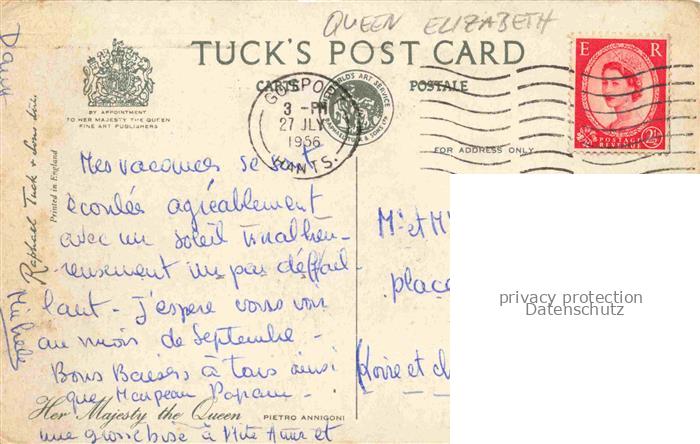 QUEEN ELIZABETH
TUCK'S POST CARD
CARTE POSTALE
BY APPOINTMENT
TO HER MAJESTY THE QUEEN
FINE ART PUBLISHERS
GOSPORT
3 - PM
27 JLY
1956
HANTS.
WORLD'S ART SERVICE
RAPHAEL TUCK & SONS LTD
E R
POSTAGE
REVENUE
2½D
FOR ADDRESS ONLY
Raphael Tuck & Sons Ltd.
Printed in England
Mes vacances se sont
écoulées agréablement
avec un soleil malheu-
reusement un pas défail-
lant - J'espère vous voir
au mois de Septembre -
Bons Baisers à tous ainsi
que
une grosse bise à et
Michele
Her Majesty the Queen
PIETRO ANNIGONI
Mr et M
place
(Loire et ch
privacy protection
Datenschutz